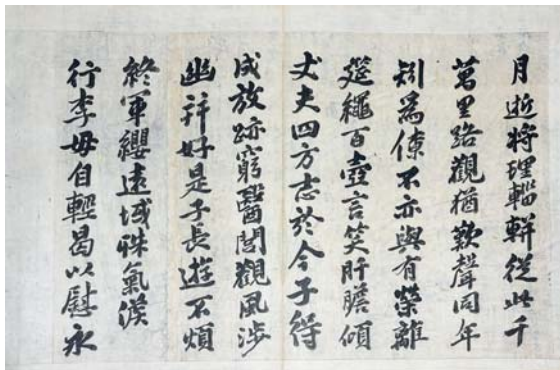 月逝將理輜軿從此千
萬里路觀猶歎聲同年
矧為僚不亦與有榮離
筵繩百壺言笑肝膽傾
丈夫四方志於今子得
成放跡窮醫閭觀風涉
幽并好是子長遊不煩
終軍纓遠域殊氣候
行李毋自輕曷以慰永